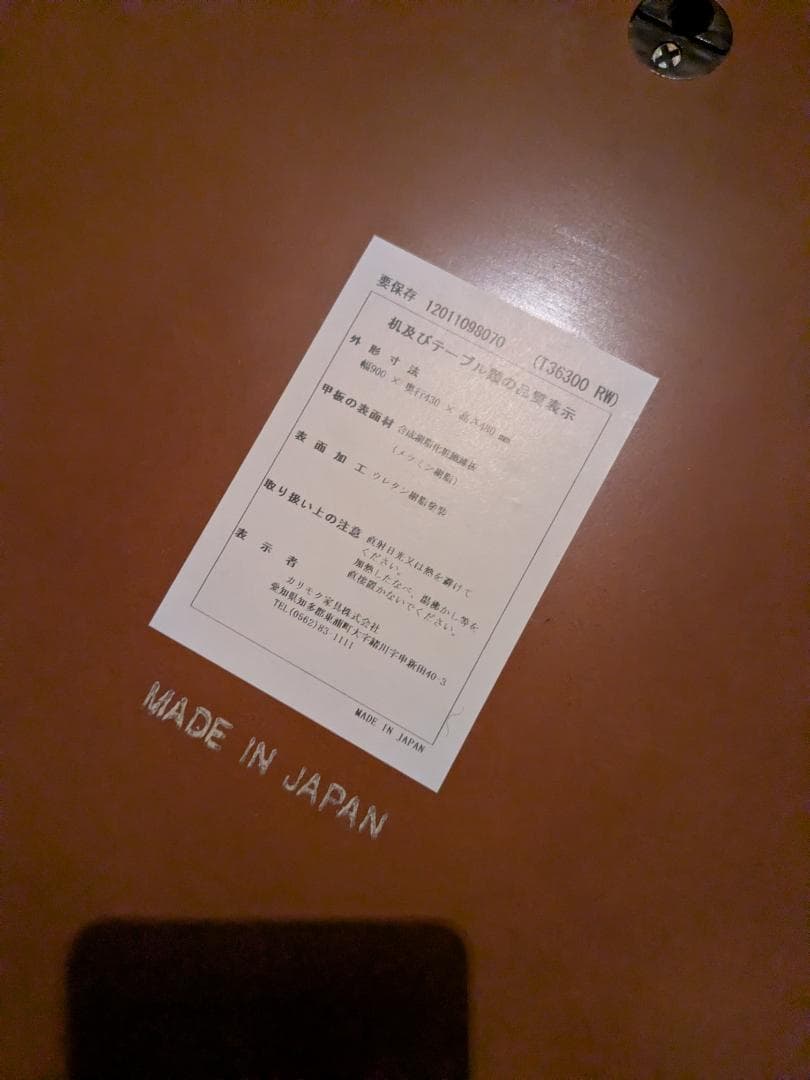 要保存 12011098070 (T36300 RW)
机及びテーブル類の品質表示
外形寸法
幅900 × 奥行430 × 高さ480 mm
甲板の表面材 合成樹脂化粧繊維板
(メラミン樹脂)
表面加工 ウレタン樹脂塗装
取り扱い上の注意 直射日光又は熱を避けて
ください。
加熱したなべ、湯沸かし等を
直接置かないでください。
表示者
カリモク家具株式会社
愛知県知多郡東浦町大字緒川字申新田40-3
TEL(0562)83-1111
MADE IN JAPAN
MADE IN JAPAN